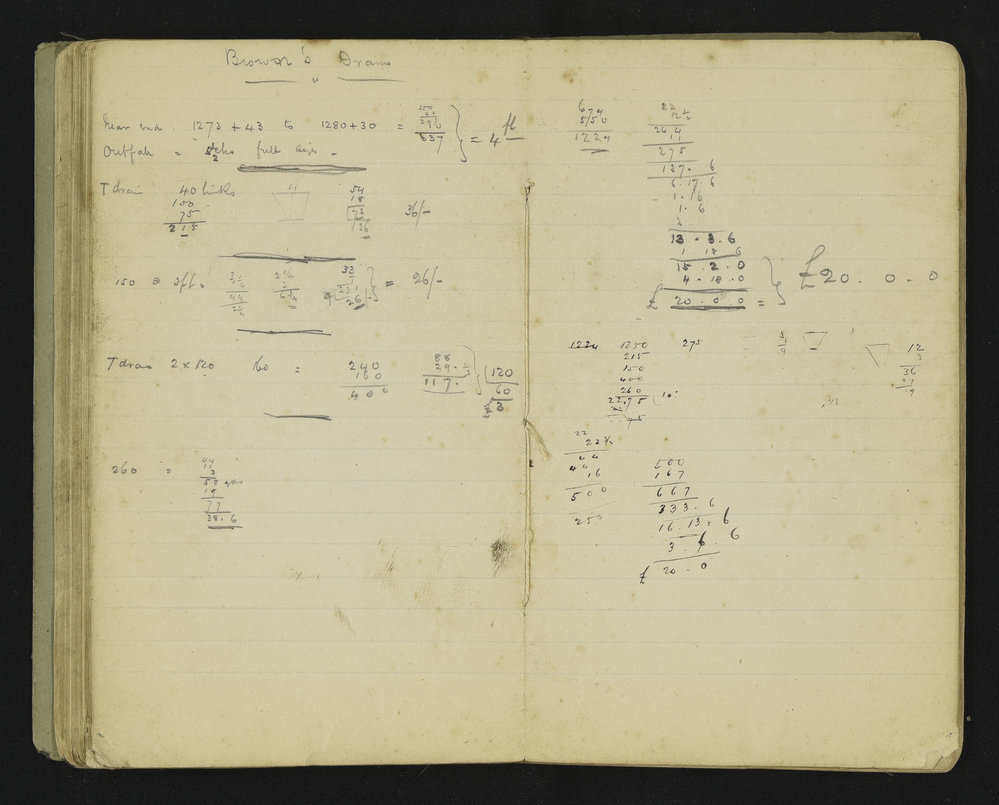 Brown's Drains
near end 1273 + 43 to 1280 + 30 =
837
= 4 ft
Outfall = full size
T drain 40 links
100
75
215
54
18
72
36
36/-
150 @ 3ft =
33
26
= 26/-
T drain 2 x 120 60 =
240
160
400
88
29
117
120
60
£3
260 =
44
11
3
58 yds
19
77
38.6
674
550
1224
22
12½
264
11
275
137.6
6.17.6
1.16
1.6
13.8.6
1.18.6
15.2.0
4.18.0
£ 20.0.0 =
£20.0.0
1224 1250 275
215
150
400
260
2275
8
1
9
12
3
36
27
9
22
22¾
44
44
16
500
250
500
167
667
333.6
16.13.6
3.6.6
£ 20.0